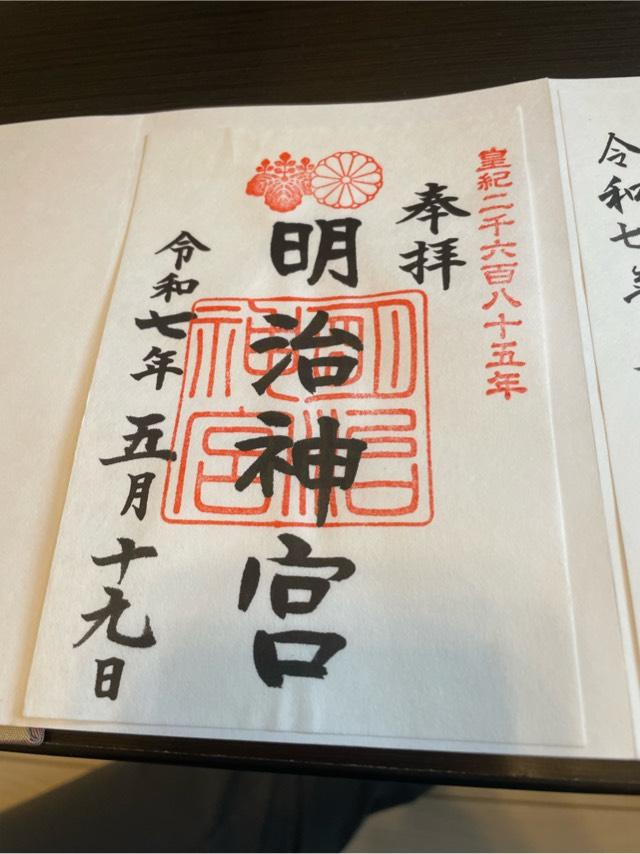 皇紀二千六百八十五年
奉拝
明治神宮
明治神宮
令和七年五月十九日
令和七年